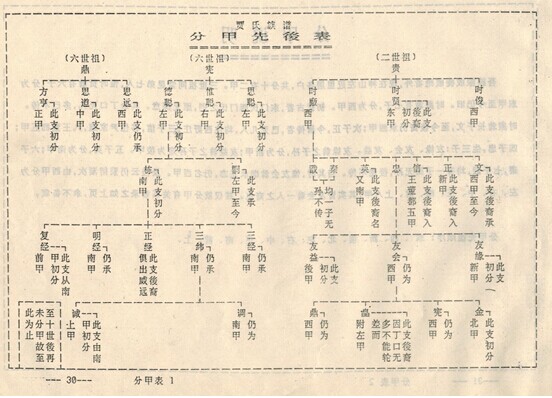 贾氏族谱
分甲先後表
(二世祖)
贵
(六世祖)
(六世祖)
鼎
时俊
西甲
时贤
东甲
此支
後裔
西甲
思聪
此支初分
左甲
惟聪
此支初分
右甲
德聪
此支初分
左甲
思远
此支仍承
西甲
思道
此支初分
中甲
方亨
此支初分
正甲
文
此支後裔承
西甲至今
正
此支後裔入
新甲
信
此支後裔入
王童都五甲
忠
英
此支後裔名
又南甲
均一子无
孙不传
此支承
左甲至今
栋
此支初分
南甲
友缘
此支
初分
新甲
友会
仍为
西甲
友益
此支
初分
後甲
三经
仍承
南甲
三纬
仍承
南甲
正经
此支後裔
俱出咸远
明经
仍承
南甲
复经
此支从南
甲初分
前甲
金
此支初分
北甲
宪
仍为
西甲
此支後裔
因丁口无
多不能轮
差而
附左甲
鼎
仍为
西甲
调
仍为
南甲
诚
此支由南
甲初分
上甲
至十世後再
未分甲故至
此为止
--- 30---
分甲表 1